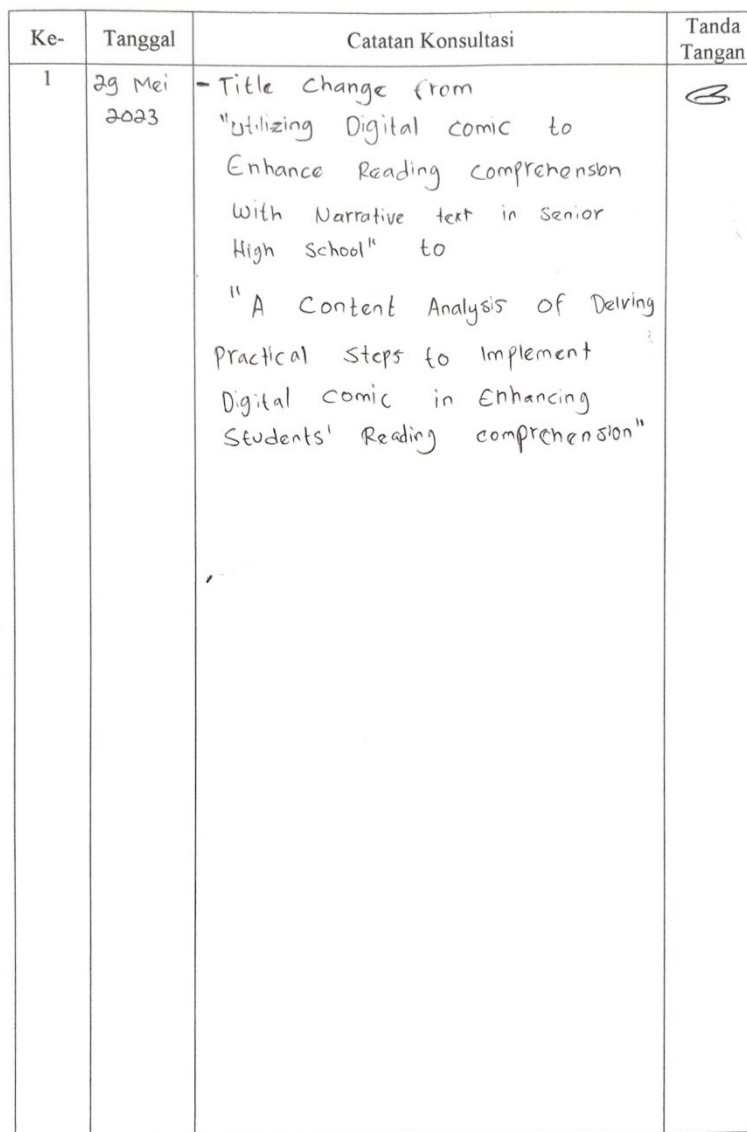 Ke- Tanggal Catatan Konsultasi Tanda Tangan
1 29 Mei 2023
- Title Change from
"Utilizing Digital comic to
Enhance Reading Comprehension
With Narrative text in Senior
High School" to
"A Content Analysis of Delving
Practical Steps to Implement
Digital Comic in Enhancing
Students' Reading comprehension"